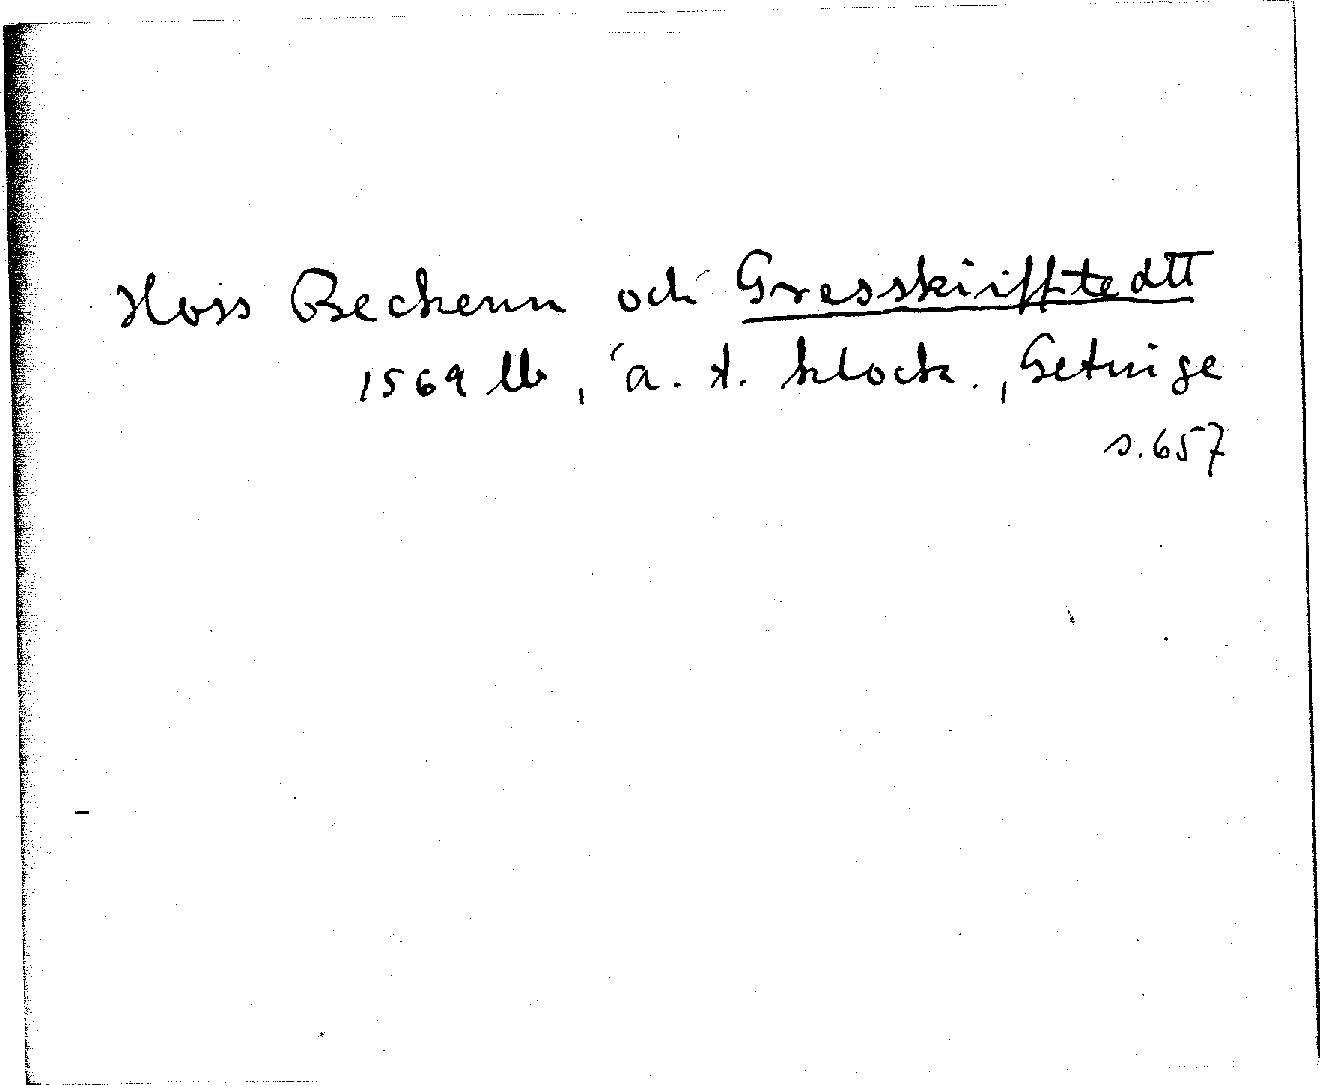 Hoss Beckenn och Gresskiifftedtt
1569 lb, a. t. klock., Getinge
s. 657